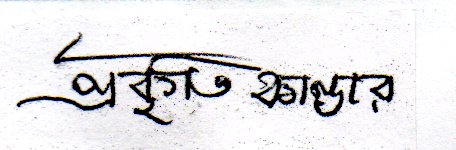 প্রকৃতি ভাণ্ডার